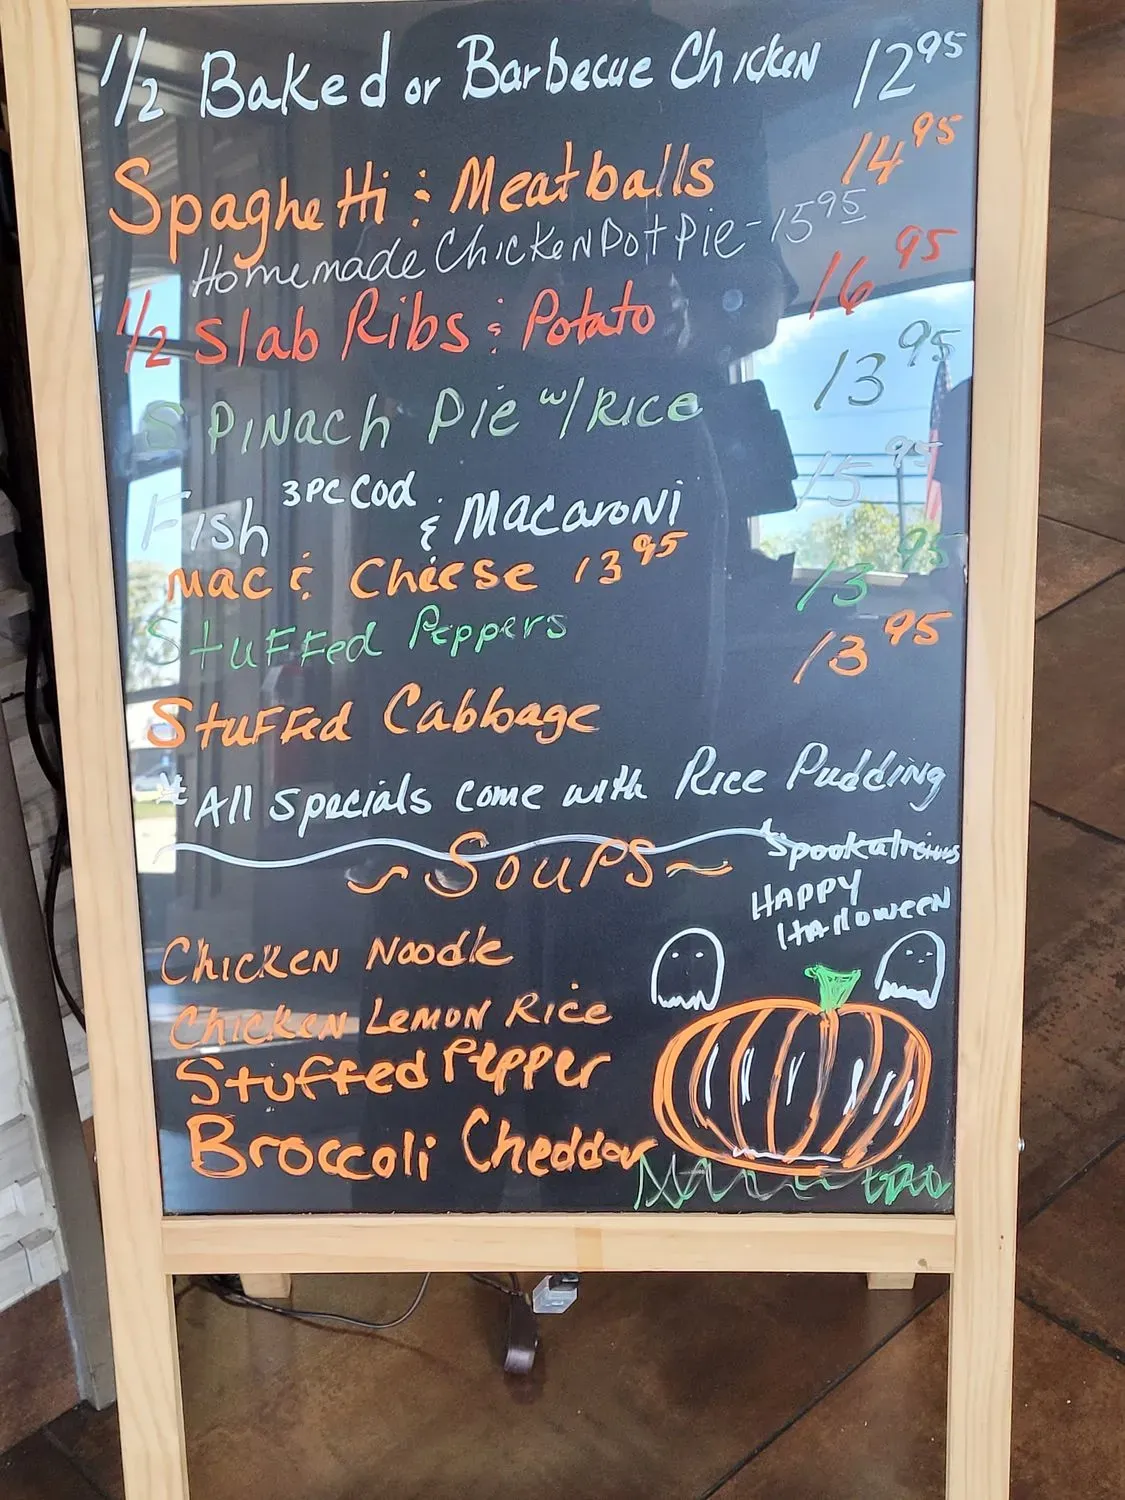 1/2 Baked or Barbecue Chicken 12 95
Spaghetti & Meatballs 14 95
Homemade Chicken Pot Pie - 15 95
1/2 Slab Ribs & Potato 16 95
Spinach Pie w/ Rice 13 95
Fish 3pc Cod & Macaroni 15 95
Mac & Cheese 13 95
Stuffed Peppers 13 95
Stuffed Cabbage 13 95
* All Specials come with Rice Pudding
~ Soups ~
Spookalicious
Happy
Halloween
Chicken Noodle
Chicken Lemon Rice
Stuffed Pepper
Broccoli Cheddar